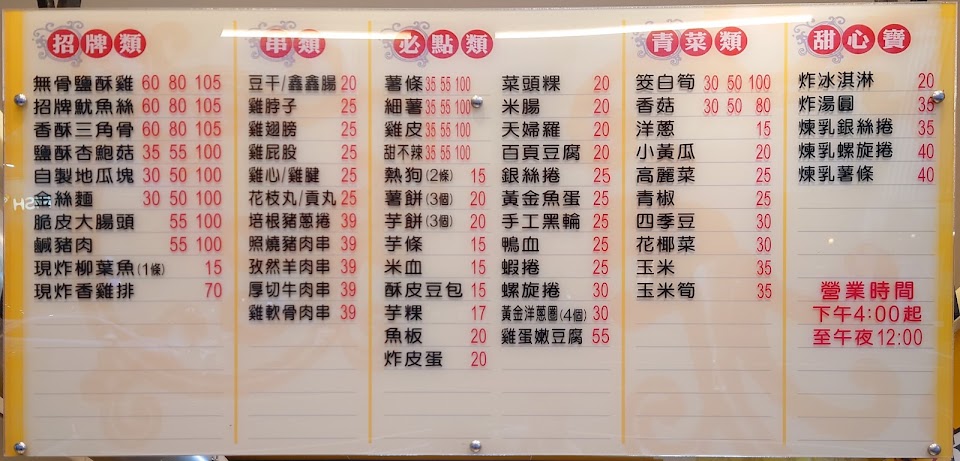 招牌類
無骨鹽酥雞 60 80 105
招牌魷魚絲 60 80 105
香酥三角骨 60 80 105
鹽酥杏鮑菇 35 55 100
自製地瓜塊 30 50 100
金絲麵 30 50 100
脆皮大腸頭 55 100
鹹豬肉 55 100
現炸柳葉魚(1條) 15
現炸香雞排 70
串類
豆干/鑫鑫腸 20
雞脖子 25
雞翅膀 25
雞屁股 25
雞心/雞腱 25
花枝丸/貢丸 25
培根豬蔥捲 39
照燒豬肉串 39
孜然羊肉串 39
厚切牛肉串 39
雞軟骨肉串 39
必點類
薯條 35 55 100
細薯 35 55 100
雞皮 35 55 100
甜不辣 35 55 100
熱狗(2條) 15
薯餅(3個) 20
芋餅(3個) 20
芋條 15
米血 15
酥皮豆包 15
芋粿 17
魚板 20
炸皮蛋 20
菜頭粿 20
米腸 20
天婦羅 20
百頁豆腐 20
銀絲捲 25
黃金魚蛋 25
手工黑輪 25
鴨血 25
蝦捲 25
螺旋捲 30
黃金洋蔥圈(4個) 30
雞蛋嫩豆腐 55
青菜類
筊白筍 30 50 100
香菇 30 50 80
洋蔥 15
小黃瓜 20
高麗菜 25
青椒 25
四季豆 30
花椰菜 30
玉米 35
玉米筍 35
甜心寶
炸冰淇淋 20
炸湯圓 35
煉乳銀絲捲 35
煉乳螺旋捲 40
煉乳薯條 40
營業時間
下午4:00起
至午夜12:00